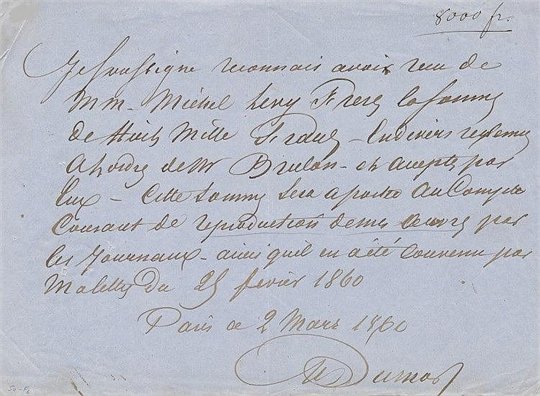 8000 fr.
Je soussigné reconnais avoir recu de
MM. Michel Levy Freres la somme
de Huit Mille Francs - En divers reglemens
a l'ordre de Mr Brulon - et acceptés par
Eux - Cette somme sera aportée au Compte
Courant de reproduction de mes œuvres par
les Journaux - ainsi qu'il en a été convenu par
ma lettre du 25 fevrier 1860
Paris ce 2 Mars 1860
A Dumas